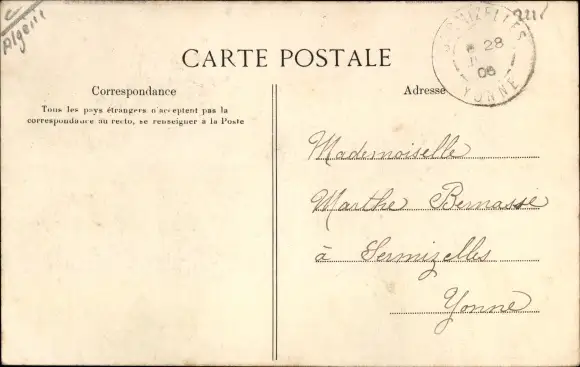 Algerie
2218
SERMIZELLES
28
06
YONNE
CARTE POSTALE
Correspondance
Tous les pays étrangers n'acceptent pas la
correspondance au recto, se renseigner à la Poste
Adresse
Mademoiselle
Marthe Bernasse
à Sermizelles
Yonne